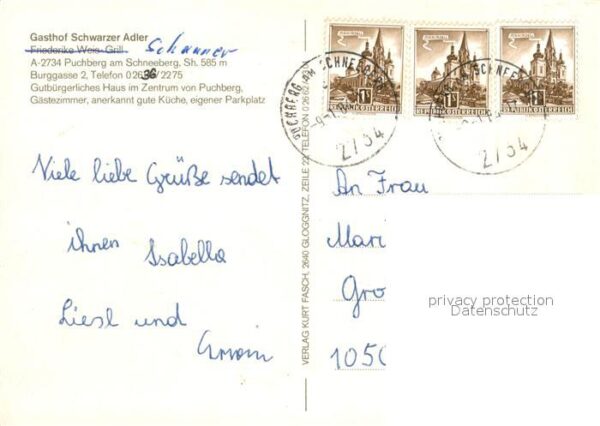 Gasthof Schwarzer Adler
Friederike Weis-Grill
A-2734 Puchberg am Schneeberg, Sh. 585 m
Burggasse 2, Telefon 02636/2275
Gutbürgerliches Haus im Zentrum von Puchberg,
Gästezimmer, anerkannt gute Küche, eigener Parkplatz
Viele liebe Grüße sendet
ihnen Isabella
Liesl und
VERLAG KURT FASCH, 2640 GLOGGNITZ, ZEILE 22, TELEFON 02662
PUCHBERG AM SCHNEEBERG
2734
2734
REPUBLIK ÖSTERREICH
REPUBLIK ÖSTERREICH
REPUBLIK ÖSTERREICH
An Frau
Mari
Gro
1050
privacy protection
Datenschutz